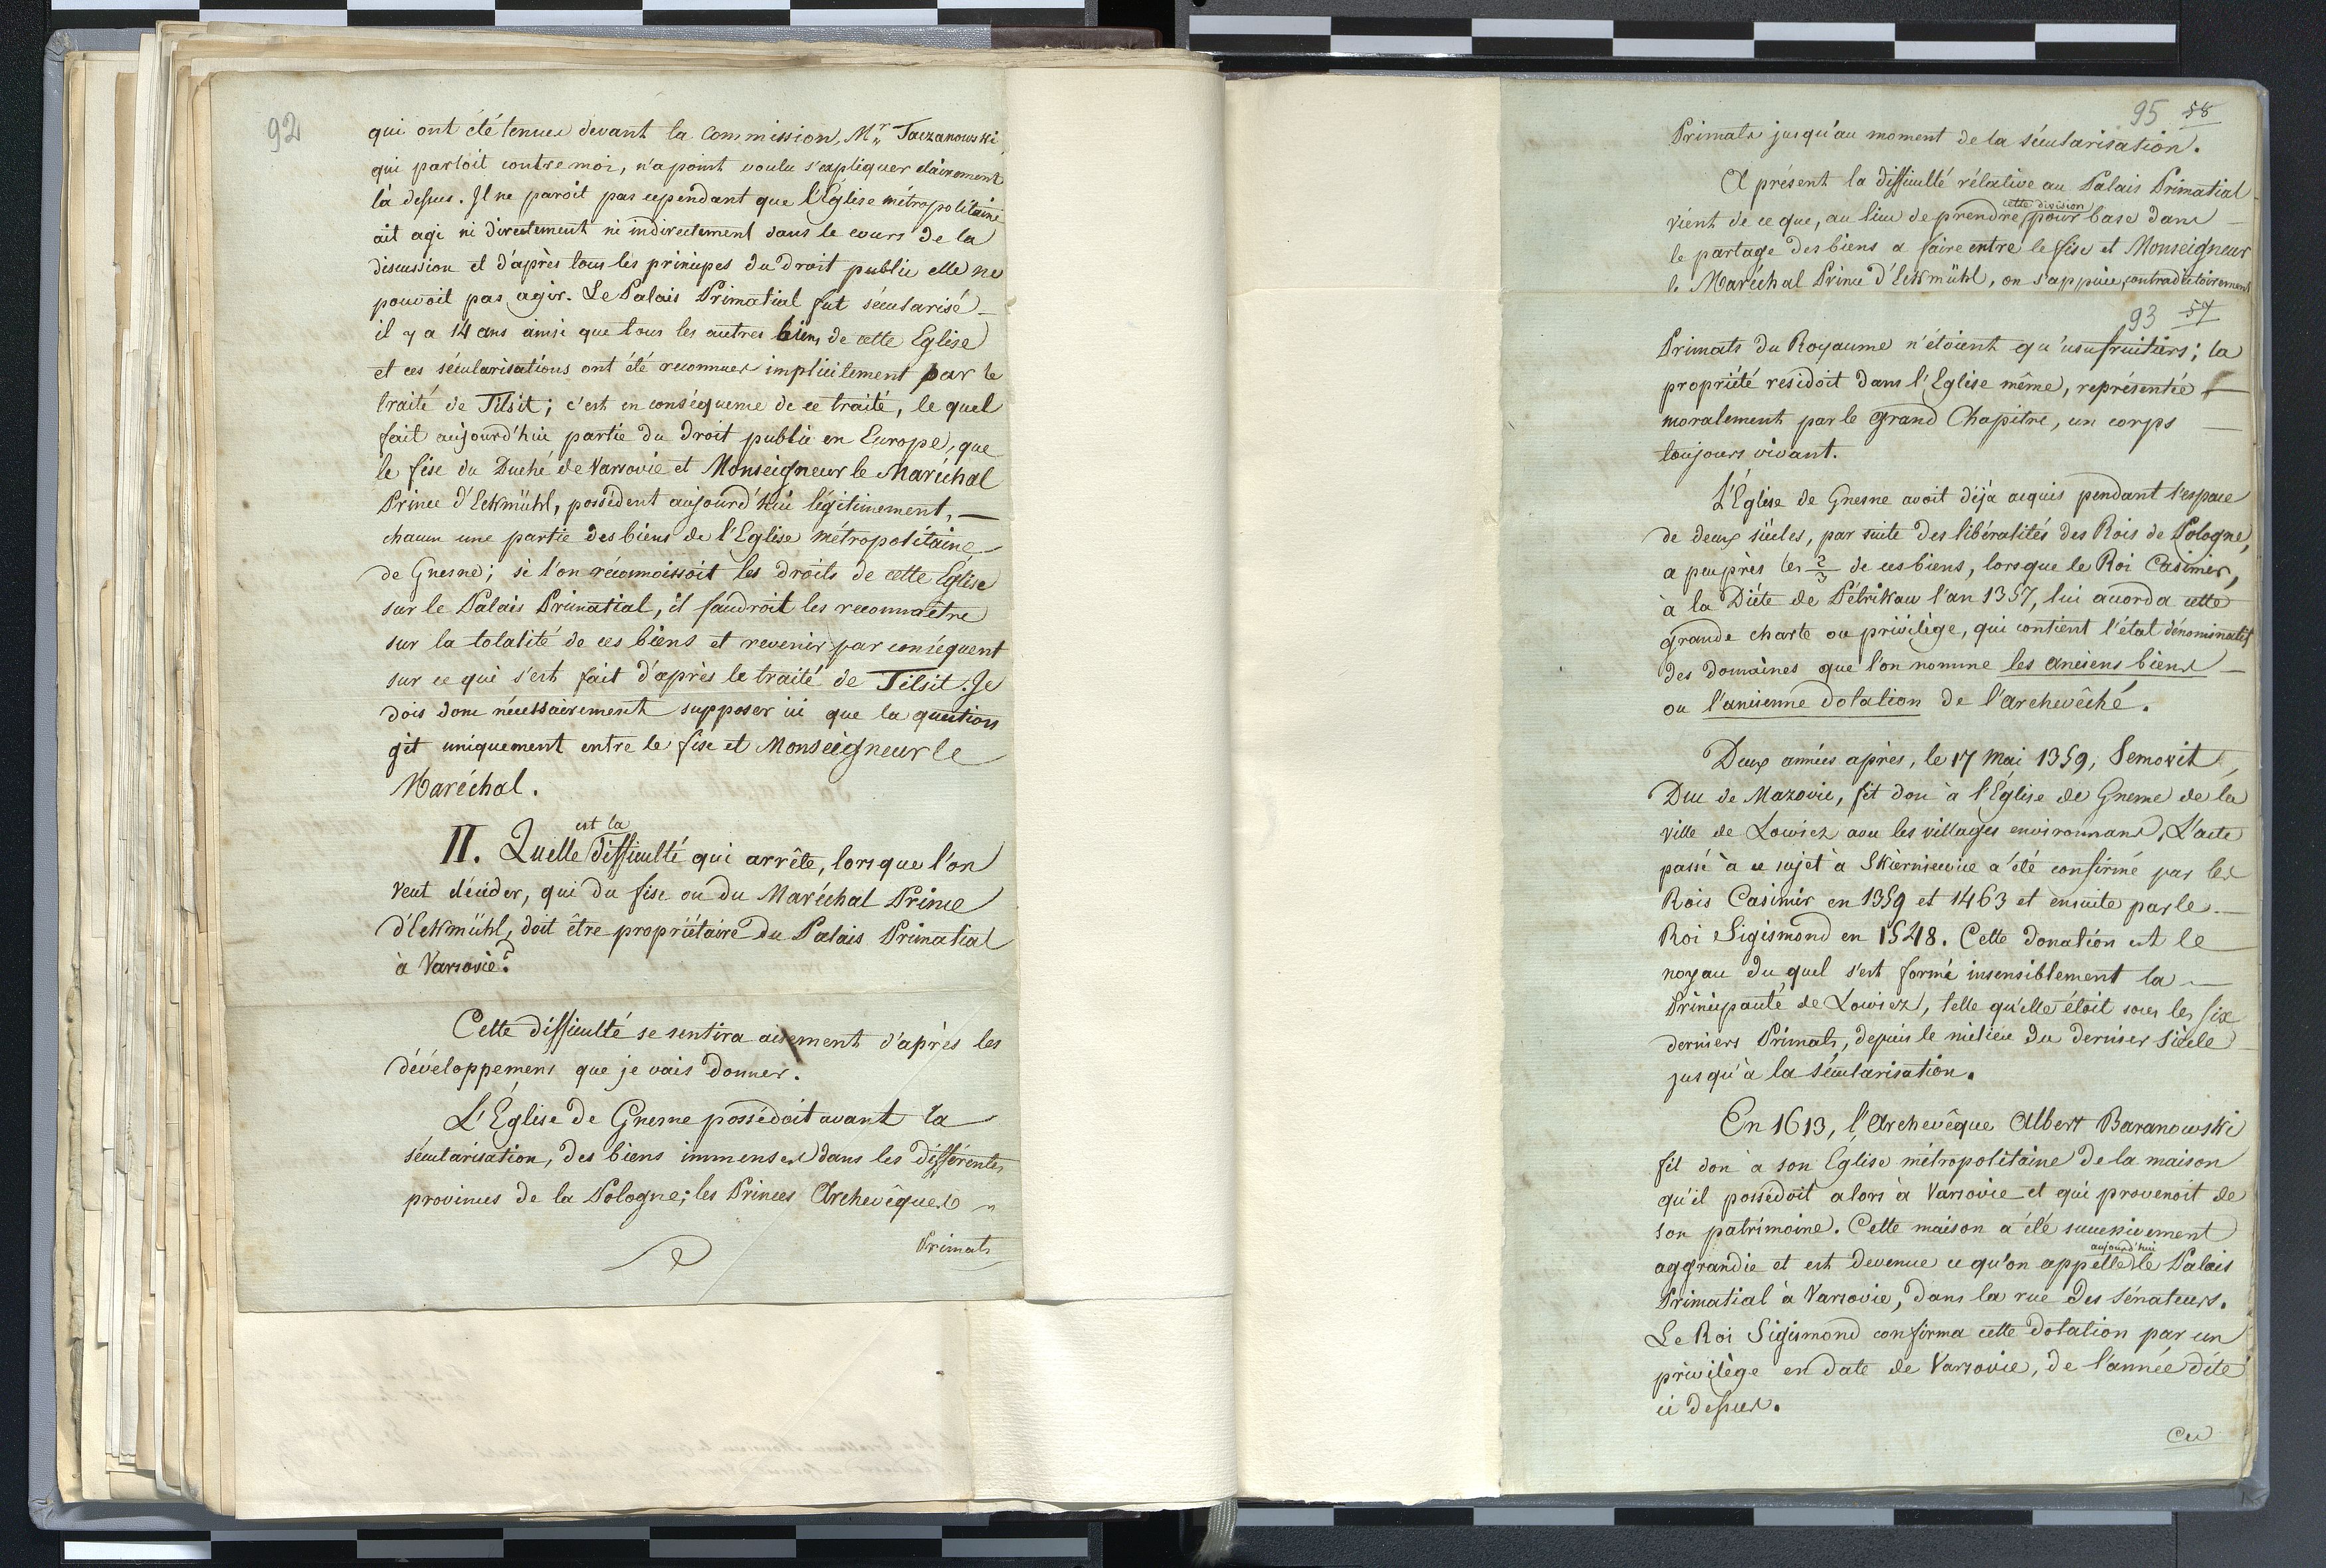 92
qui ont été tenues devant la Commission, Mr. Taczanowski,
qui parloit contre moi, n'a point voulu s'expliquer clairement
là dessus. Il ne paroit pas cependant que l'Église métropolitaine
ait agi ni directement ni indirectement dans le cours de la
discussion et d'après tous les principes du droit public elle ne
pouvoit pas agir. Le Palais Primatial fut sécularisé
il y a 14 ans ainsi que tous les autres biens de cette Eglise
et ces sécularisations ont été reconnues implicitement par le
traité de Tilsit; c'est en conséquence de ce traité, le quel
fait aujourd'hui partie du droit public en Europe, que
le fisc du Duché de Varsovie et Monseigneur le Maréchal
Prince d'Eckmühl, possèdent aujourd'hui légitimement, —
chacun une partie des biens de l'Eglise métropolitaine
de Gnesne; si l'on réconnoissoit les droits de cette Eglise
sur le Palais Primatial, il faudroit les reconnaetre
sur la totalité de ces biens et revenir par conséquent
sur ce qui s'est fait d'après le traité de Tilsit. Je
dois donc nécessairement supposer ici que la question
git uniquement entre le fisc et Monseigneur le
Maréchal.
est la
II. Quelle difficulté qui arrête, lorsque l'on
veut décider, qui du fisc ou du Maréchal Prince
d'Eckmühl, doit être propriétaire du Palais Primatial
à Varsovie?
Cette difficulté se sentira aisement d'après les
développemens que je vais donner.
L'Église de Gnesne possédoit avant la
sécularisation, des biens immenses dans les différentes
provinces de la Pologne; les Princes Archevêques
Primats
95 58
Primats jusqu'au moment de la sécularisation.
A présent la difficulté rélative au Palais Primatial
cette division
vient de ce que, au lieu de prendre pour base dans —
le partage des biens a faire entre le fisc et Monseigneur
le Maréchal Prince d'Eckmühl, on s'appuie, contradictoirement
93 57
Primats du Royaume n'étoient qu'usufruitiers; la
propriété residoit dans l'Eglise même, représentée —
moralement par le grand Chapitre, un corps —
toujours vivant.
L'Église de Gnesne avoit déjà acquis pendant l'espace
de deux siècles, par suite des libéralités des Rois de Pologne,
a peuprès les 2/3 de ces biens, lorsque le Roi Casimir,
à la Diéte de Pétrikau l'an 1357, lui accorda cette
grande charte ou privilège, qui contient l'état dénominatif
des domaines que l'on nomme les anciens biens —
ou l'ancienne dotation de l'archevêché.
Deux années après, le 17 Mai 1359, Semovit,
Duc de Mazovie, fit don à l'Église de Gnesne de la
ville de Lowicz avec les villages environnans. L'acte
passé à ce sujet à Skierniewice a été confirmé par les
Rois Casimir en 1359 et 1463 et ensuite par le —
Roi Sigismond en 1548. Cette donation est le
noyau du quel s'est formé insensiblement la —
Principauté de Lowicz, telle qu'elle étoit sous les six
derniers Primats, depuis le milieu du dernier Siècle
jusqu'à la sécularisation.
En 1613, l'Archevêque Albert Baranowski
fit don à son Eglise métropolitaine de la maison
qu'il possédoit alors à Varsovie et qui provenoit de
son patrimoine. Cette maison a été successivement
aujourd'hui
aggrandie et est devenue ce qu'on appelle le Palais
Primatial à Varsovie, dans la rue des Sénateurs.
Le Roi Sigismond confirma cette dotation par un
privilège en date de Varsovie, de l'année dite
ci dessus.